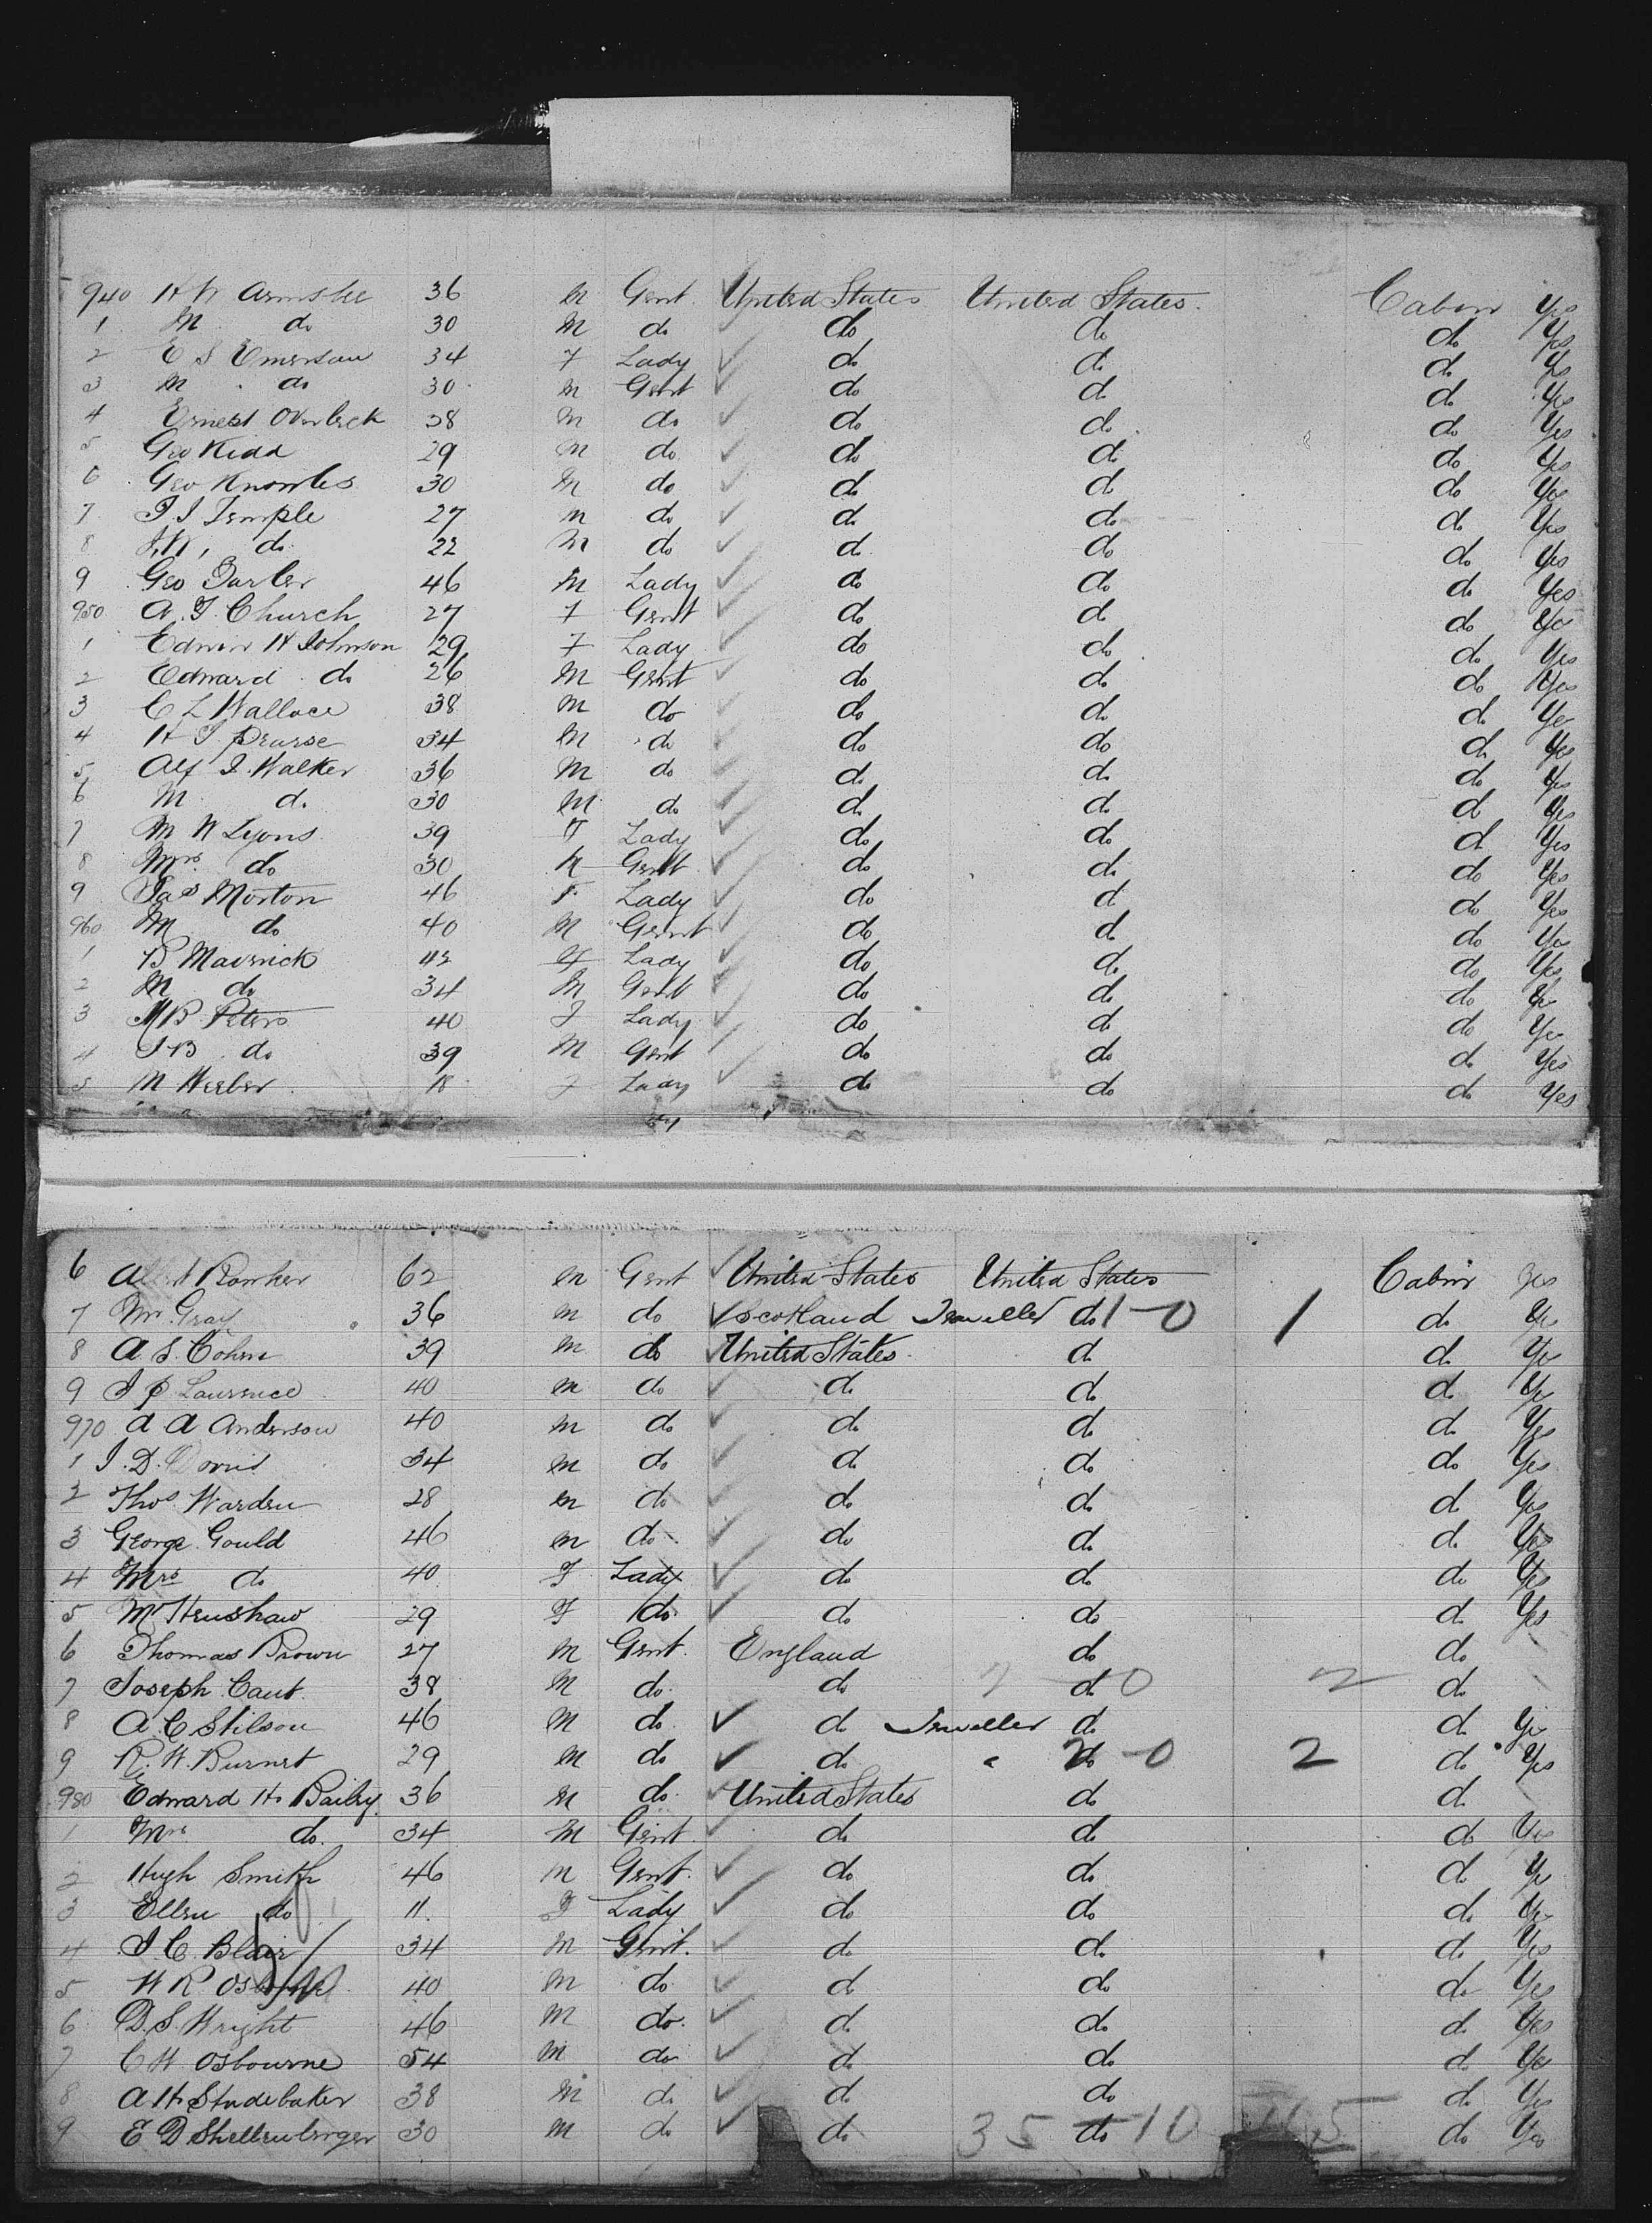 940 H W 36 M Gent United States United States Cabin Yes
1 M do 30 M do do do do Yes
2 E S Emerson 34 F Lady do do do Yes
3 M do 30 M Gent do do do Yes
4 Ernest Overbeck 38 M do do do do Yes
5 Geo Kidd 29 M do do do do Yes
6 Geo Knowles 30 M do do do do Yes
7 T. I Temple 27 M do do do do Yes
8 J. W. do 22 M do do do do Yes
9 Geo 46 M Lady do do do Yes
950 A. T. Church 27 F Gent do do do Yes
1 Edwin H Johnson 29 F Lady do do do Yes
2 Edward do 26 M Gent do do do Yes
3 C L Wallace 38 M do do do do Yes
4 H T Pearse 34 M do do do do Yes
5 Alf I. Walker 36 M do do do do Yes
6 M do 30 M do do do do Yes
7 M W Lyons 39 F Lady do do do Yes
8 Mrs do 30 M Gent do do do Yes
9 Jas Morton 46 F Lady do do do Yes
960 M do 40 M Gent do do do Yes
1 B Maverick 42 F Lady do do do Yes
2 M do 34 M Gent do do do Yes
3 M B Peters 40 F Lady do do do Yes
4 J B do 39 M Gent do do do Yes
5 M Weeber 18 F Lady do do do Yes
6 Albert 62 M Gent United States United States Cabin Yes
7 Mr Gray 36 M do Scotland Traveller do 1-0 1 do Yes
8 A. S. Cohen 39 M do United States do do Yes
9 J P Laurence 40 M do do do do Yes
970 A A Anderson 40 M do do do do Yes
1 J. D. 34 M do do do do Yes
2 Thos Warden 28 M do do do do Yes
3 George Gould 46 M do do do do Yes
4 Mrs do 40 F Lady do do do Yes
5 Mr Henshaw 29 F do do do do Yes
6 Thomas Brown 27 M Gent. England do do
7 Joseph Cant. 38 M do do 2 do 0 2 do
8 A. C Stilson 46 M do do Traveller do do Yes
9 R. W. Burnet 29 M do do " do 2-0 2 do Yes
980 Edward H. Bailey 36 M do United States do do
1 Mrs do. 34 M Gent do do do Yes
2 Hugh Smith 46 M Gent. do do do Yes
3 Ellen do 11. F Lady do do do Yes
4 J. C. Blair 34 M Gent. do do do Yes
5 W R 40 M do do do do Yes
6 D. S. Wright 46 M do. do do do Yes
7 C W Osbourne 54 M do do do do Yes
8 A H Studebaker 38 M do do do do Yes
9 E D Shellenberger 30 M do do 35 do 10 do Yes